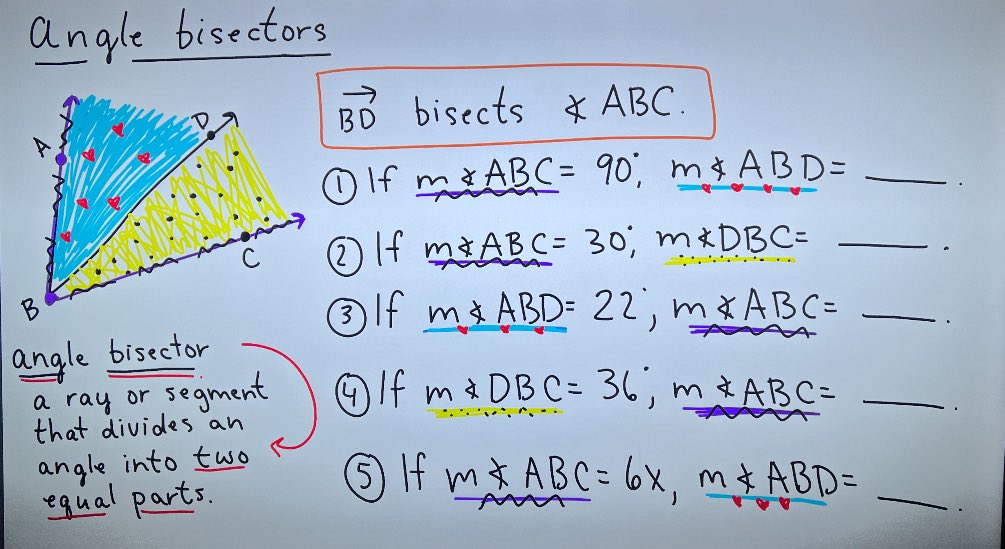 angle bisectors
BD bisects ∡ ABC.
① If m∡ABC = 90°, m∡ABD = ____.
② If m∡ABC = 30°, m∡DBC = ____.
③ If m∡ABD = 22°, m∡ABC = ____.
④ If m∡DBC = 36°, m∡ABC = ____.
⑤ If m∡ABC = 6x, m∡ABD = ____.
A
D
B
C
angle bisector
a ray or segment
that divides an
angle into two
equal parts.